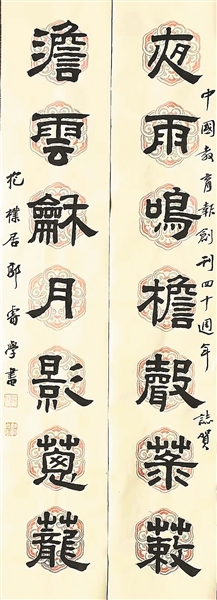 中國教育報創刊四十週年 誌賀
夜雨鳴檐聲蔌
澹雲龢月影蔥蘢
抱樸居睿學書